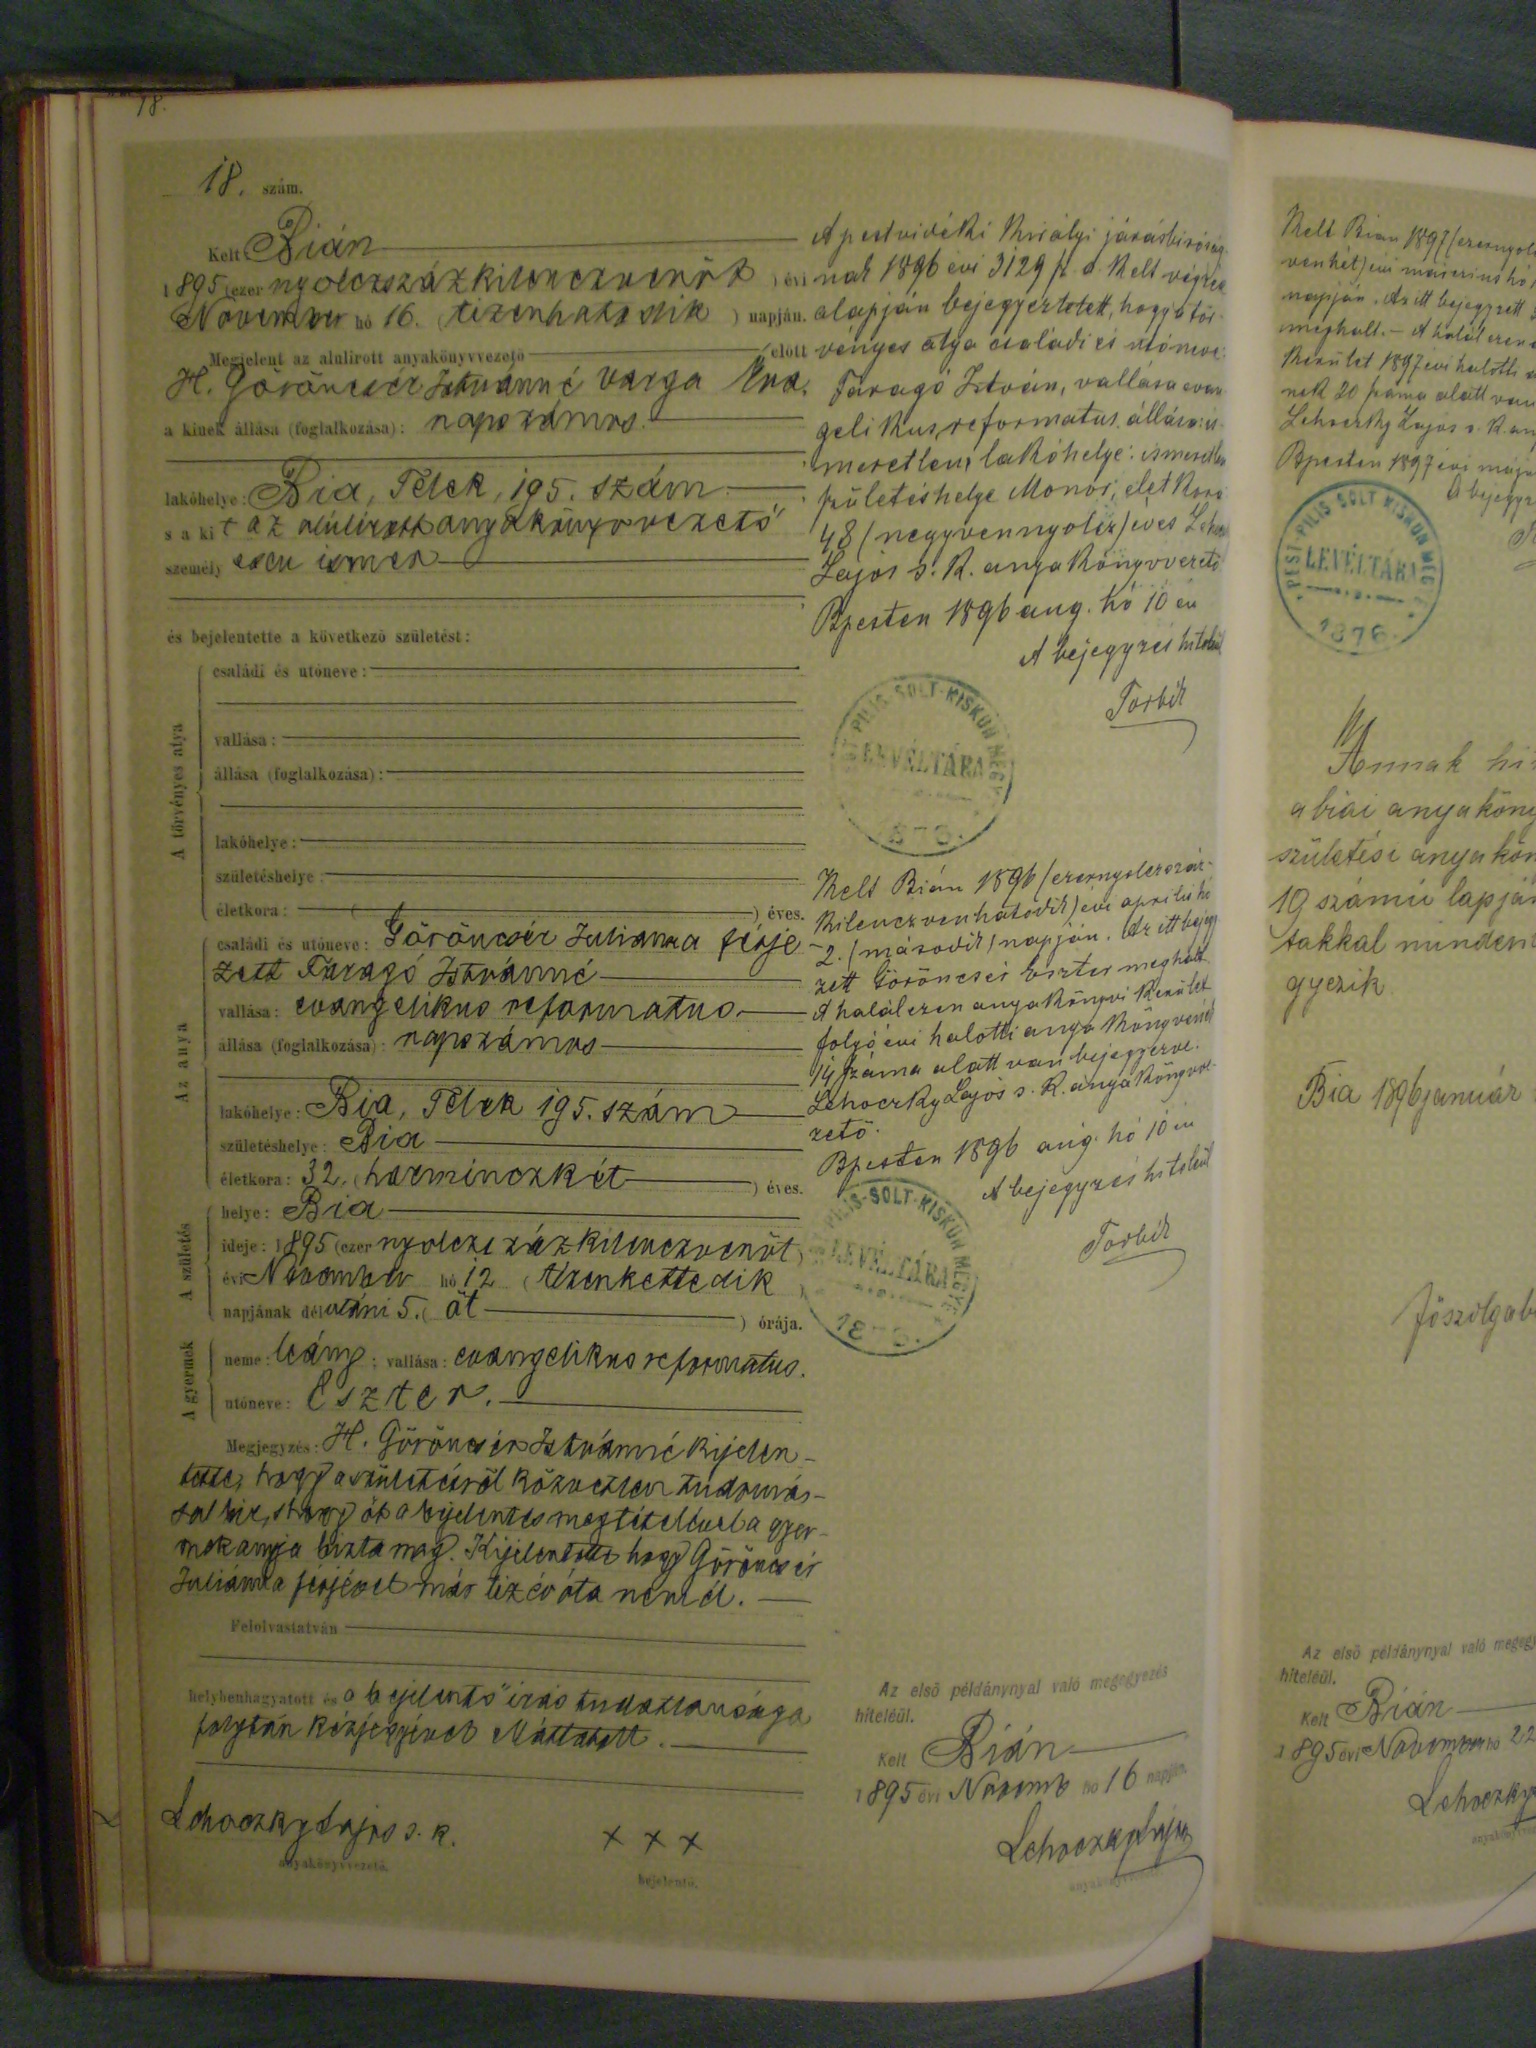 18.
18. szám.
Kelt Bián
1895 (ezer nyolczszázkilenczvenöt ) évi
November hó 16. (tizenhatodik ) napján.
Megjelent az alulirott anyakönyvvezető előtt
H. Göröncsér Istvánné Varga Éva.
a kinek állása (foglalkozása): napszámos.
lakóhelye: Bia, Telek, 195. szám
s a kit az alúlirott anyakönyvvezető
személyesen ismer
és bejelentette a következő születést:
A törvényes atya
családi és utóneve:
vallása:
állása (foglalkozása):
lakóhelye:
születéshelye:
életkora: ( ) éves.
Az anya
családi és utóneve: Göröncsér Julianna férje
zett Faragó Istvánné
vallása: evangelikus reformatus
állása (foglalkozása): napszámos
lakóhelye: Bia, Telek 195. szám
születéshelye: Bia
életkora: 32. (harminczkét ) éves.
A születés
helye: Bia
ideje: 1895 (ezer nyolczszázkilenczvenöt)
évi November hó 12 (tizenkettedik
napjának délutáni 5. (öt ) órája.
A gyermek
neme: leány; vallása: evangelikus reformatus.
utóneve: Eszter.
Megjegyzés: H. Göröncsér Istvánné kijelen-
tette, hogy a születésről közvetlen tudomás-
sal bir, s hogy őt a bejelentés megtételével a gyer-
mek anyja bízta meg. Kijelentette hogy Göröncsér
Juliánna férjével már tiz év óta nem él.
Felolvastatván
helybenhagyatott és a bejelentő irás tudatlansága
folytán kézjegyével elláttatott.
Lehoczky Lajos s. k.
anyakönyvvezető.
x x x
bejelentő.
A pestvidéki Királyi járásbiróság-
nak 1896 évi 3129 sz. a. kelt végzése
alapján bejegyeztetett, hogy a tör-
vényes atya családi és utóneve:
Faragó István, vallása evan
gelikus, reformatus, állása: is-
meretlen, lakóhelye: ismeretlen
születéshelye Monor, életkora
48 (negyvennyolcz) éves Lehoczky
Lajos s. k. anyakönyvvezető
Bpesten 1896 aug. hó 10 én
A bejegyzés hiteléül
Torbik
PEST-PILIS-SOLT-KISKUN MEGYE
LEVÉLTÁRA
1876.
Kelt Bián 1896 (ezernyolczszáz-
kilenczvenhatodik) évi április hó
2. (második) napján. Az itt bejegy
zett Göröncsér Eszter meghalt.
A halál ezen anyakönyvi kerület
folyó évi halotti anyakönyvének
14 száma alatt van bejegyezve.
Lehoczky Lajos s. k. anyakönyvve-
zető.
Bpesten 1896 aug. hó 10 én
A bejegyzés hiteléül
Torbik
PILIS-SOLT-KISKUN MEGYE
LEVÉLTÁRA
1876.
Az első példánynyal való megegyezés
hiteléül.
Kelt Bián
1895 évi Novemb hó 16 napján.
Lehoczky Lajos
anyakönyvvezető.
Kelt Bián 1897 (ezernyolcz
venhét) évi márczius hó
napján. Az itt bejegyzett
meghalt. – A halál ezen a
kerület 1897 évi halotti a
nek 20 száma alatt van
Lehoczky Lajos s. k. an
Bpesten 1897 évi máj
A bejegyz
PEST-PILIS-SOLT-KISKUN MEGYE
LEVÉLTÁRA
1876.
Annak hi
a biai anyaköny
születési anyakön
19 számú lapján
takkal minden
gyezik.
Bia 1896 január
főszolgab
Az első példánynyal való megegy
hiteléül.
Kelt Bián
1895 évi November hó 22
Lehoczky
anyakönyv